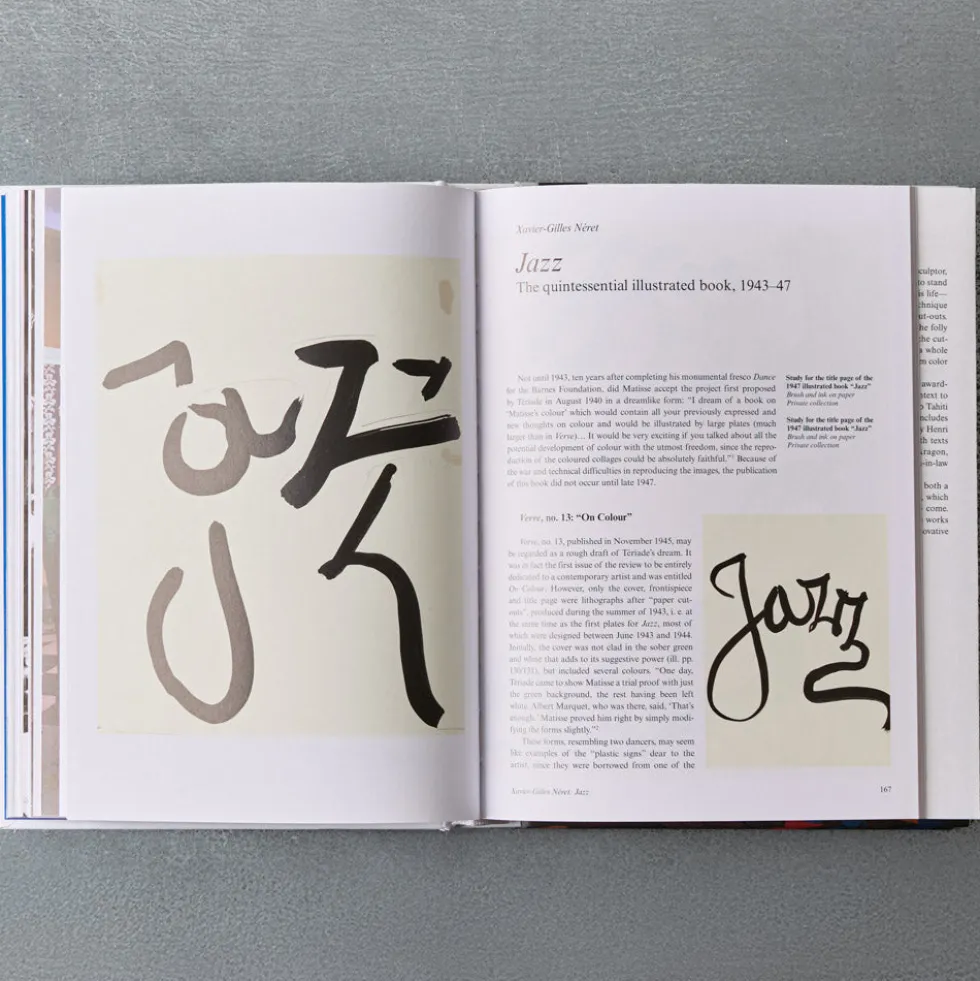 Jazz
Xavier-Gilles Néret
Jazz
The quintessential illustrated book, 1943–47
Not until 1943, ten years after completing his monumental fresco Dance
for the Barnes Foundation, did Matisse accept the project first proposed
by Tériade in August 1940 in a dreamlike form: “I dream of a book on
‘Matisse’s colour’ which would contain all your previously expressed and
new thoughts on colour and would be illustrated by large plates (much
larger than in Verve)… It would be very exciting if you talked about all the
potential development of colour with the utmost freedom, since the repro-
duction of the coloured collages could be absolutely faithful.”¹ Because of
the war and technical difficulties in reproducing the images, the publication
of this book did not occur until late 1947.
Study for the title page of the
1947 illustrated book “Jazz”
Brush and ink on paper
Private collection
Study for the title page of the
1947 illustrated book “Jazz”
Brush and ink on paper
Private collection
Verve, no. 13: “On Colour”
Verve, no. 13, published in November 1945, may
be regarded as a rough draft of Tériade’s dream. It
was in fact the first issue of the review to be entirely
dedicated to a contemporary artist and was entitled
On Colour. However, only the cover, frontispiece
and title page were lithographs after “paper cut-
outs”, produced during the summer of 1943, i. e. at
the same time as the first plates for Jazz, most of
which were designed between June 1943 and 1944.
Initially, the cover was not clad in the sober green
and white that adds to its suggestive power (ill. pp.
130/131), but included several colours. “One day,
Tériade came to show Matisse a trial proof with just
the green background, the rest having been left
white. Albert Marquet, who was there, said, ‘That’s
enough.’ Matisse proved him right by simply modi-
fying the forms slightly.”²
These forms, resembling two dancers, may seem
like examples of the “plastic signs” dear to the
artist, since they were borrowed from one of the
Jazz
Xavier-Gilles Néret: Jazz
167
sculptor,
to stand
is life—
chnique
ut-outs.
he folly
the cut-
a whole
m color
award-
ntext to
o Tahiti
ncludes
y Henri
th texts
ragon,
-in-law
both a
, which
come.
works
ovative